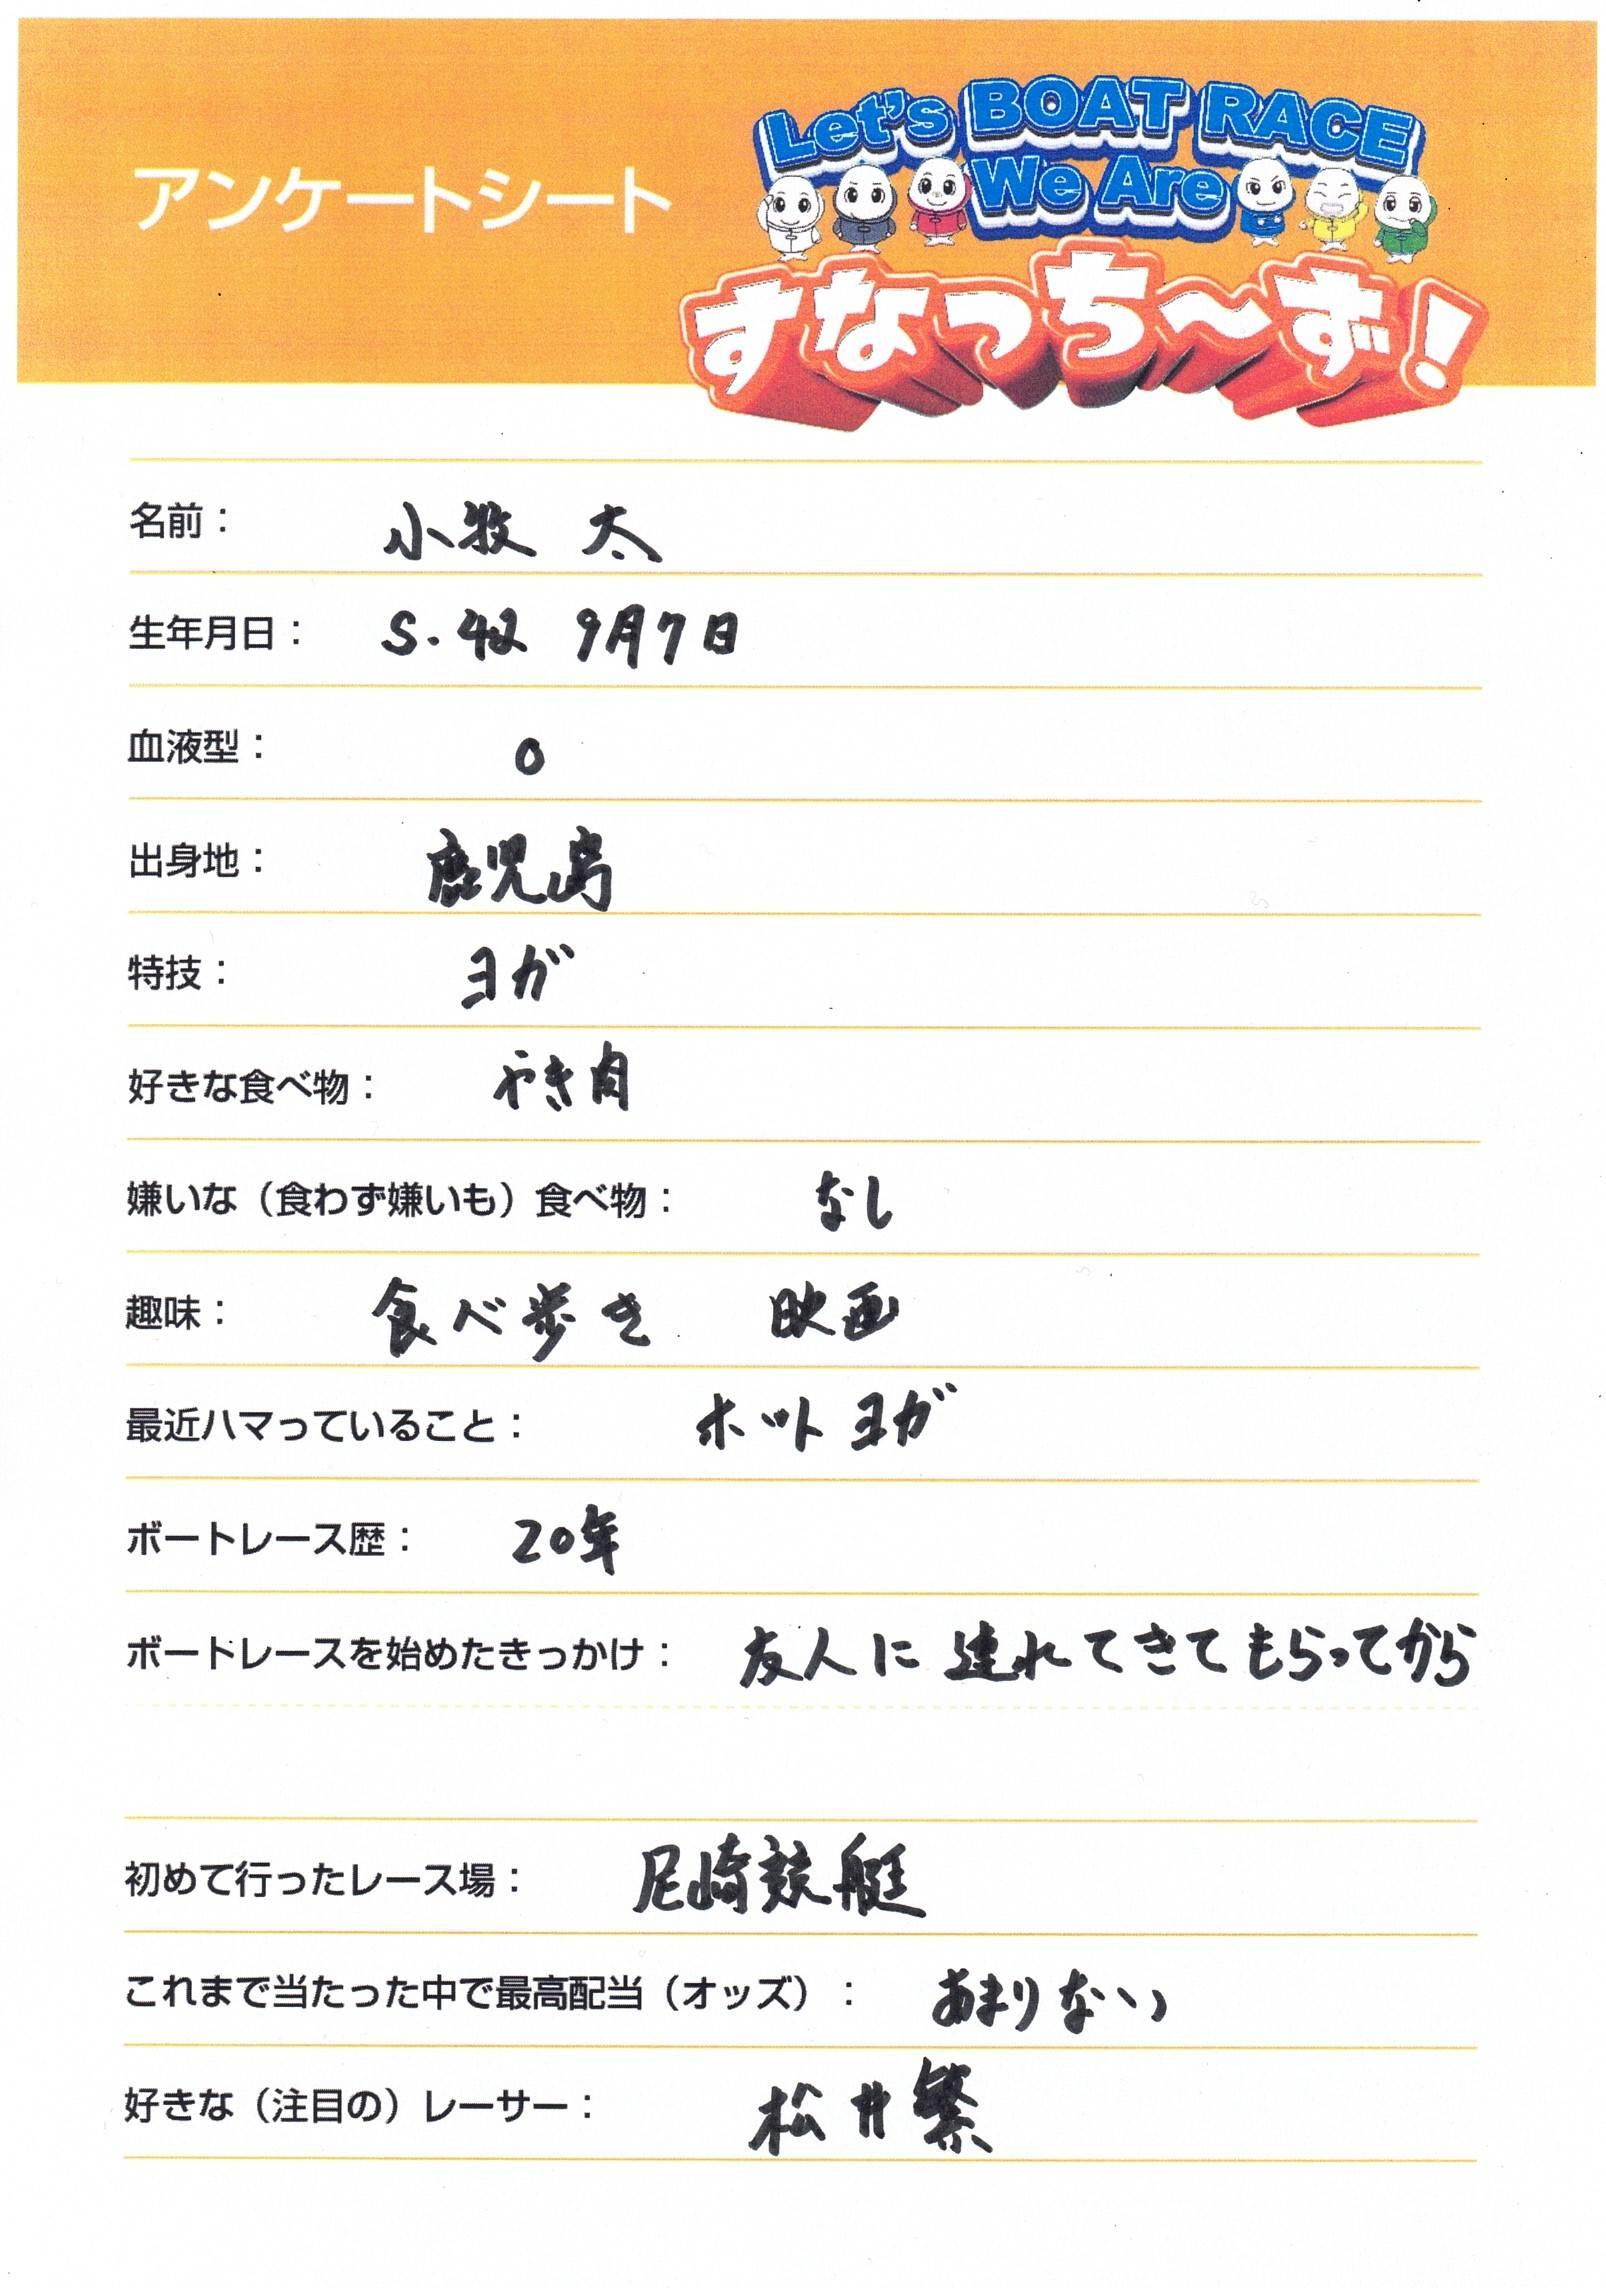 Let's BOAT RACE
アンケートシート
We Are
すなっち～ず!
名前： 小牧 太
生年月日： S.42 9月7日
血液型： O
出身地： 鹿児島
特技： ヨガ
好きな食べ物： やき肉
嫌いな（食わず嫌いも）食べ物： なし
趣味： 食べ歩き 映画
最近ハマっていること： ホットヨガ
ボートレース歴： 20年
ボートレースを始めたきっかけ： 友人に連れてきてもらってから
初めて行ったレース場： 尼崎競艇
これまで当たった中で最高配当（オッズ）： あまりない
好きな（注目の）レーサー： 松井繁